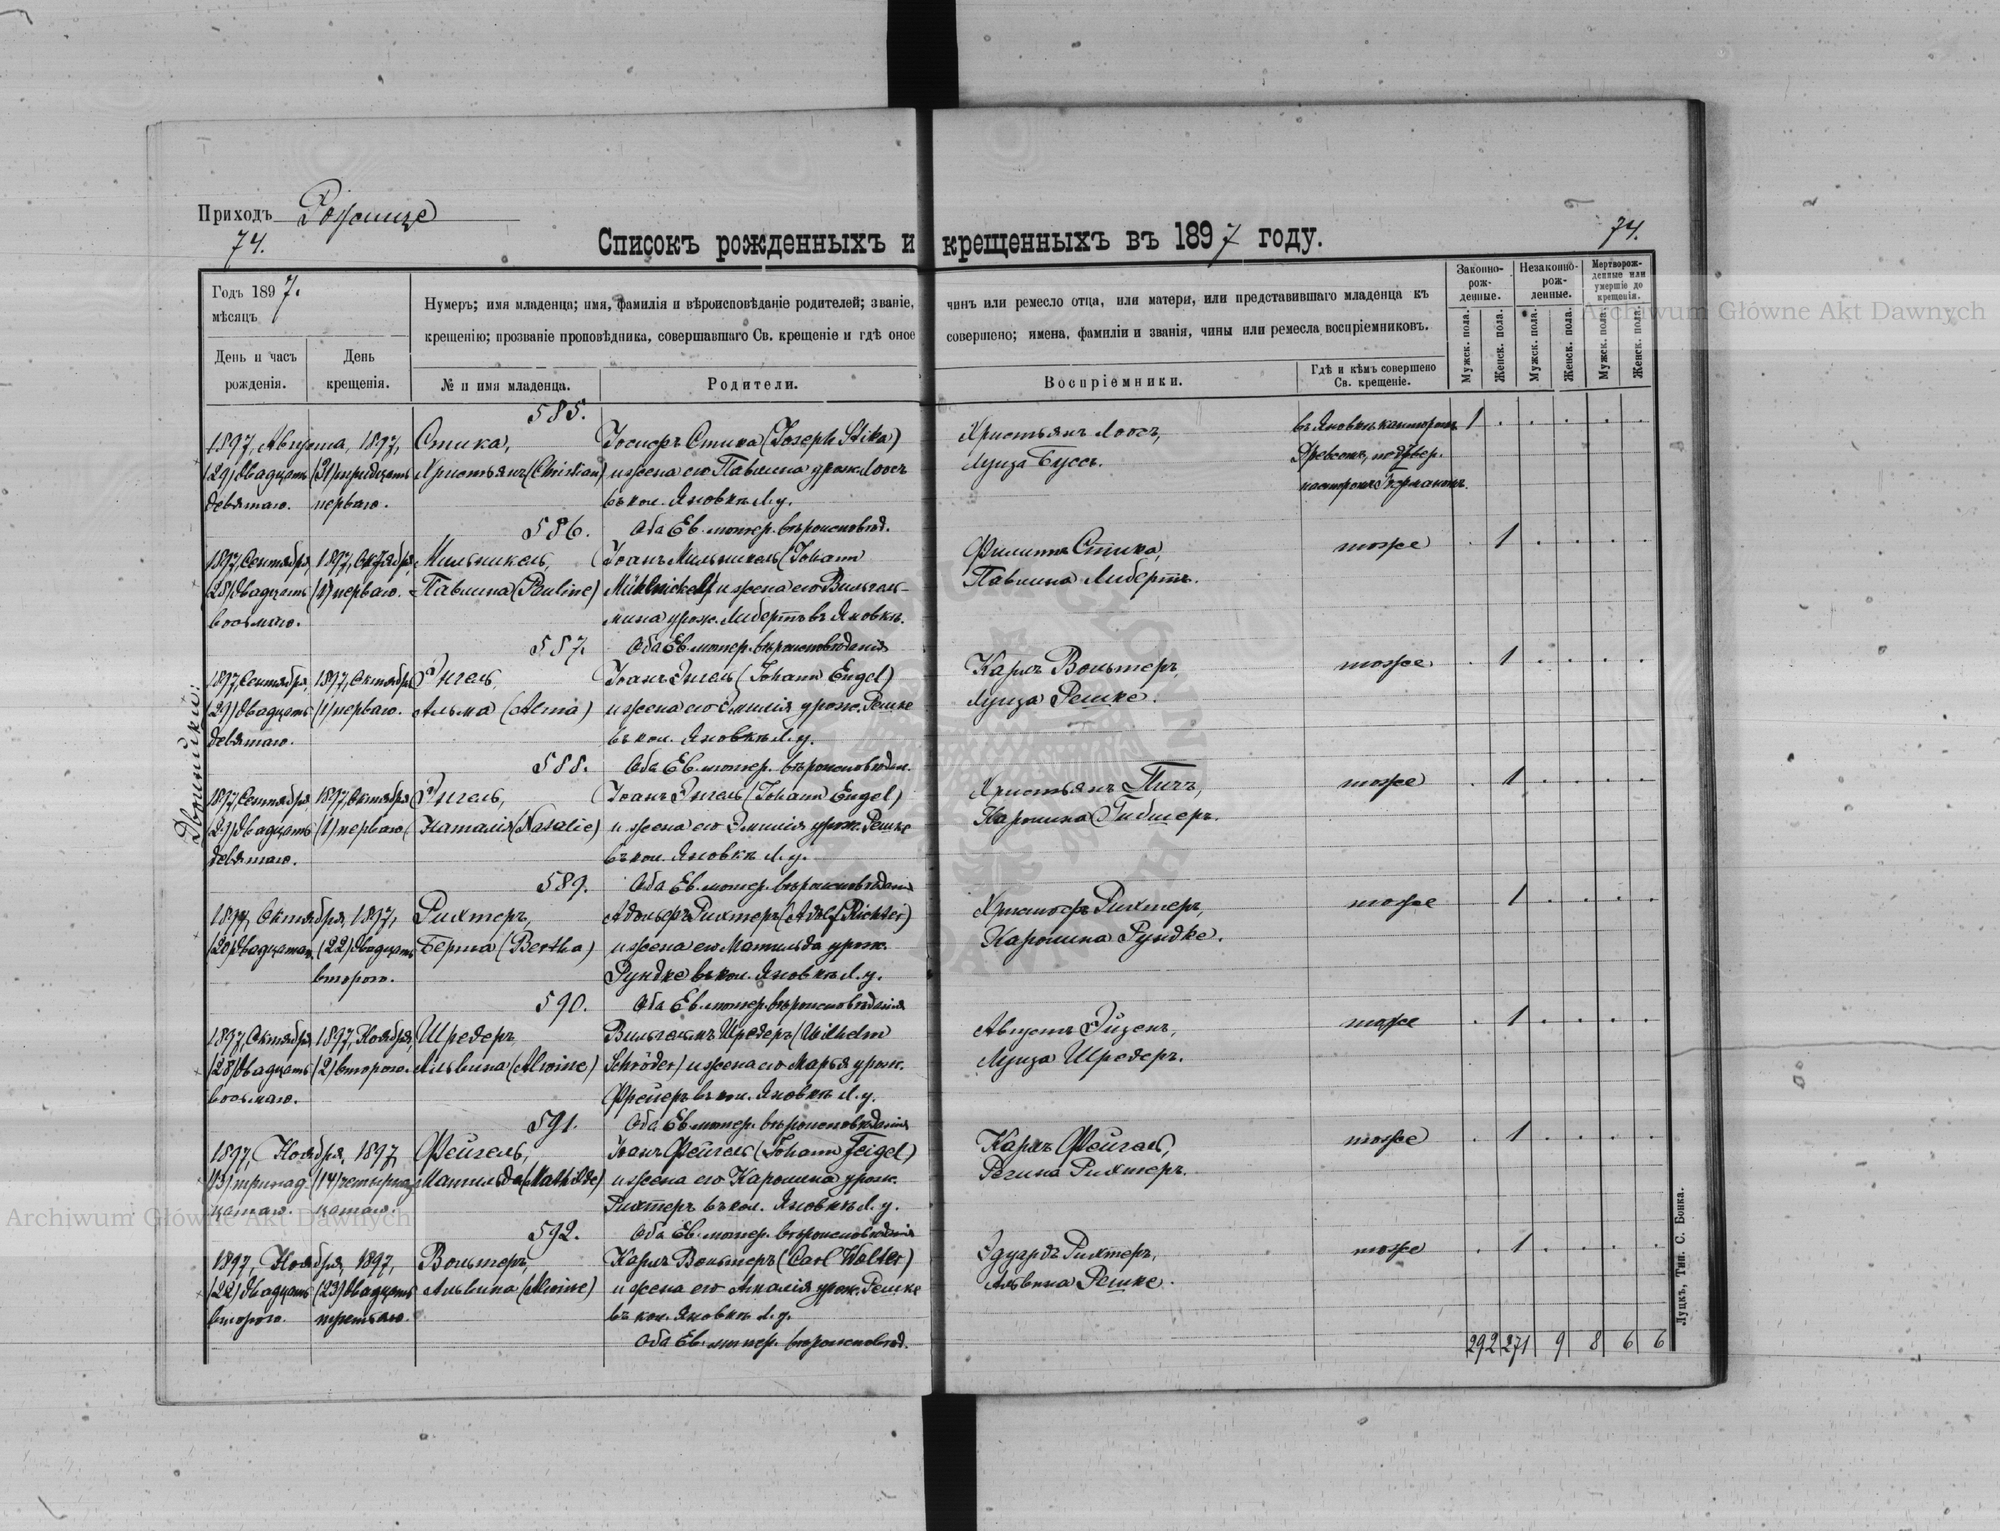 Приходъ Рожище
74.
74.
Списокъ рожденныхъ и крещенныхъ въ 1897 году.
Годъ 1897.
мѣсяцъ
День и часъ рожденія.
День крещенія.
Нумеръ; имя младенца; имя, фамилія и вѣроисповѣданіе родителей; званіе, чинъ или ремесло отца, или матери, или представившаго младенца къ
крещенію; прозваніе проповѣдника, совершавшаго Св. крещеніе и гдѣ оное совершено; имена, фамиліи и званія, чины или ремесла воспріемниковъ.
№ и имя младенца.
Родители.
Воспріемники.
Гдѣ и кѣмъ совершено Св. крещеніе.
Законно-рож-денные.
Незаконно-рож-денные.
Мертворож-денные или умершіе до крещенія.
Мужск. пола.
Женск. пола.
Мужск. пола.
Женск. пола.
Мужск. пола.
Женск. пола.
585.
1897, Августа, 1897, Стика, Іосифъ Стика (Joseph Stika) Христьянъ Лоосъ, въ Яновкѣ канторомъ 1
(29) двадцать (31) тридцать Христьянъ (Christian) и жена его Павлина урож. Лоосъ Луиза Буссъ.
девятаго. перваго. въ кол. Яновкѣ Л. у. пасторомъ
586. Оба Ев. лютер. вѣроисповѣд.
1897, Сентября, 1897, Октября, Мильникель, Іоанъ Мильникель (Johann Филиппъ Стика, тоже 1
(28) двадцать (1) перваго. Павлина (Pauline) Mühlnickel) и жена его Вильгель- Павлина Либертъ.
восьмаго. мина урож. Либертъ въ Яновкѣ.
587. Оба Ев. лютер. вѣроисповѣданія
Двойники:
1897, Сентября, 1897, Октября Энгель, Іоанъ Энгель (Johann Engel) Карлъ Вольтеръ, тоже 1
(29) двадцать (1) перваго. Альма (Alma) и жена его Эмилія урож. Решке Луиза Решке.
девятаго. въ кол. Яновкѣ Л. у.
588. Оба Ев. лютер. вѣроисповѣдан.
1897, Сентября 1897, Октября Энгель, Іоанъ Энгель (Johann Engel) Христьянъ Пичъ, тоже 1
(29) двадцать (1) перваго, Наталія (Natalie) и жена его Эмилія урож. Решке Каролина
девятаго. въ кол. Яновкѣ Л. у.
589. Оба Ев. лютер. вѣроисповѣданія
1897, Октября, 1897, Рихтеръ, Адольфъ Рихтеръ (Adolf Richter) Христофъ Рихтеръ, тоже 1
(20) двадцатаго, (22) двадцать Берта (Bertha) и жена его Матильда урож. Каролина Рундке.
второго. Рундке въ кол. Яновкѣ Л. у.
590. Оба Ев. лютер. вѣроисповѣданія
1897, Октября, 1897, Ноября, Шредеръ, Вильгельмъ Шредеръ (Wilhelm Августъ Эйзенъ, тоже 1
(28) двадцать (2) второго. Альвина (Alwine) Schröder) и жена его Марья урож. Луиза Шредеръ.
восьмаго. въ кол. Яновкѣ Л. у.
591. Оба Ев. лютер. вѣроисповѣданія
1897, Ноября, 1897, Фейгель, Іоанъ Фейгель (Johann Feigel) Карлъ Фейгель, тоже 1
(13) тринад- (14) четырнад- Матильда (Mathilde) и жена его Каролина урож. Регина Рихтеръ.
цатаго. цатаго. Рихтеръ въ кол. Яновкѣ Л. у.
592. Оба Ев. лютер. вѣроисповѣданія
1897, Ноября, 1897, Вольтеръ, Карлъ Вольтеръ (Carl Wolter) Эдуардъ Рихтеръ, тоже 1
(22) двадцать (23) двадцать Альвина (Alwine) и жена его Амалія урож. Решке Альвина Решке.
второго. третьяго. въ кол. Яновкѣ Л. у.
Оба Ев. лютер. вѣроисповѣд.
292 271 9 8 6 6
Луцкъ, Тип. С. Бонка.
Archiwum Główne Akt Dawnych
Archiwum Główne Akt Dawnych